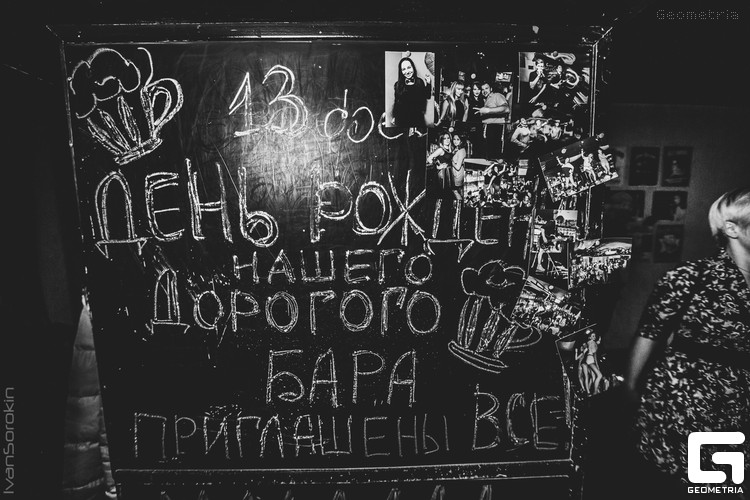 Geometria
13
ДЕНЬ РОЖДЕН
НАШЕГО
ДОРОГОГО
БАРА
ПРИГЛАШЕНЫ ВСЕ
IvanSorokin
GEOMETRIA